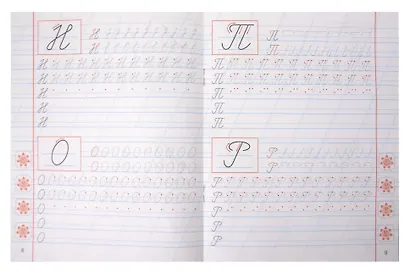 Н
Н Н Н Н Н Н Н Н Н Н
Н Н Н Н Н Н Н Н Н Н
Н Н Н Н Н Н Н Н Н Н Н Н
Н Н Н Н Н Н Н Н Н Н Н Н
Н
Н
Н
О
О О О О О О О О О О О
О О О О О О О О О О О
О О О О О О О О О О О О О
О О О О О О О О О О О О О
О
О
О
8
П
П П П П П П П П
П П П П П П П П
П
П
П
П
П
П
Р
Р Р Р Р Р Р Р Р
Р Р Р Р Р Р Р Р
Р
Р
Р
Р
Р
Р
9